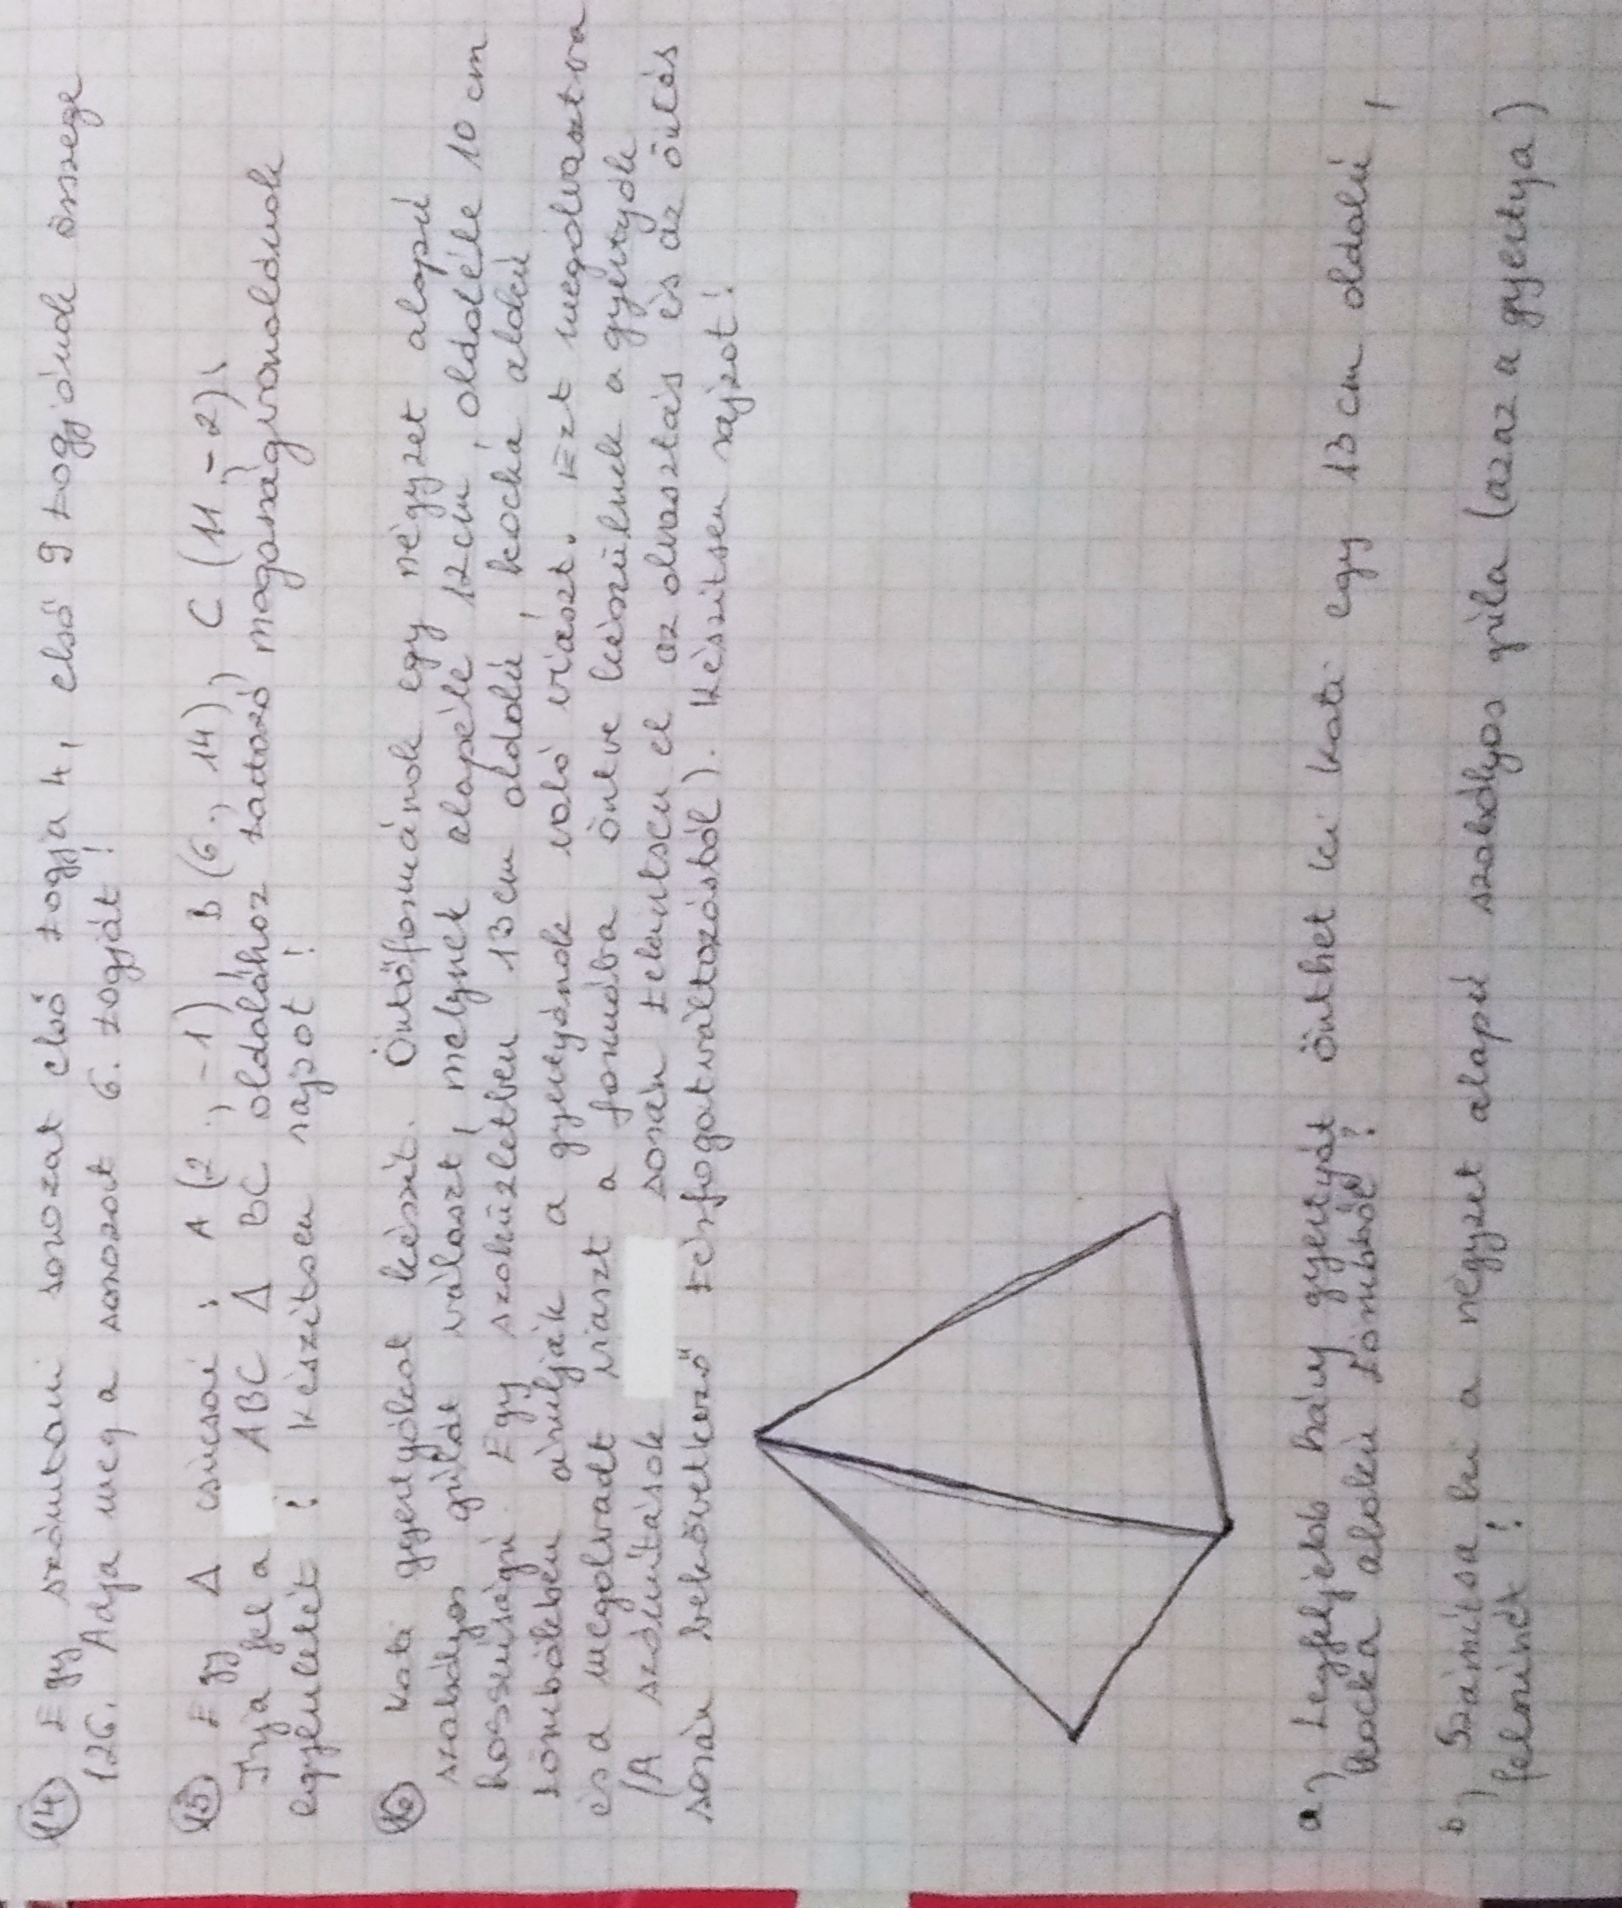 14 Egy számtani sorozat első tagja 4, első 9 tagjának összege
126. Adja meg a sorozat 6. tagját!
15 Egy Δ csúcsai : A (2 ; -1) B (6 ; 14) ; C (11 ; -2) ;
Írja fel a ABC Δ BC oldalához tartozó magasságvonalának
egyenletét ! Készítsen rajzot !
16 Kati gyertyákat készít. Öntőformának egy négyzet alapú
szabályos gúlát választ, melynek alapéle 12 cm, oldaléle 10 cm
hosszúságú. Egy szaküzletben 13 cm oldalú, kocka alakú
tömbökben árulják a gyertyának való viaszt. Ezt megolvasztva
és a megolvadt viaszt a formába öntve készülnek a gyertyák
(A számítások során tekintsen el az olvasztás és az öntés
során bekövetkező térfogatváltozásból). Készítsen rajzot!
a) Legfeljebb hány gyertyát önthet ki Kati egy 13 cm oldalú,
kocka alakú tömbből?
b) Számítsa ki a négyzet alapú szabályos gúla (azaz a gyertya)
felszínét !